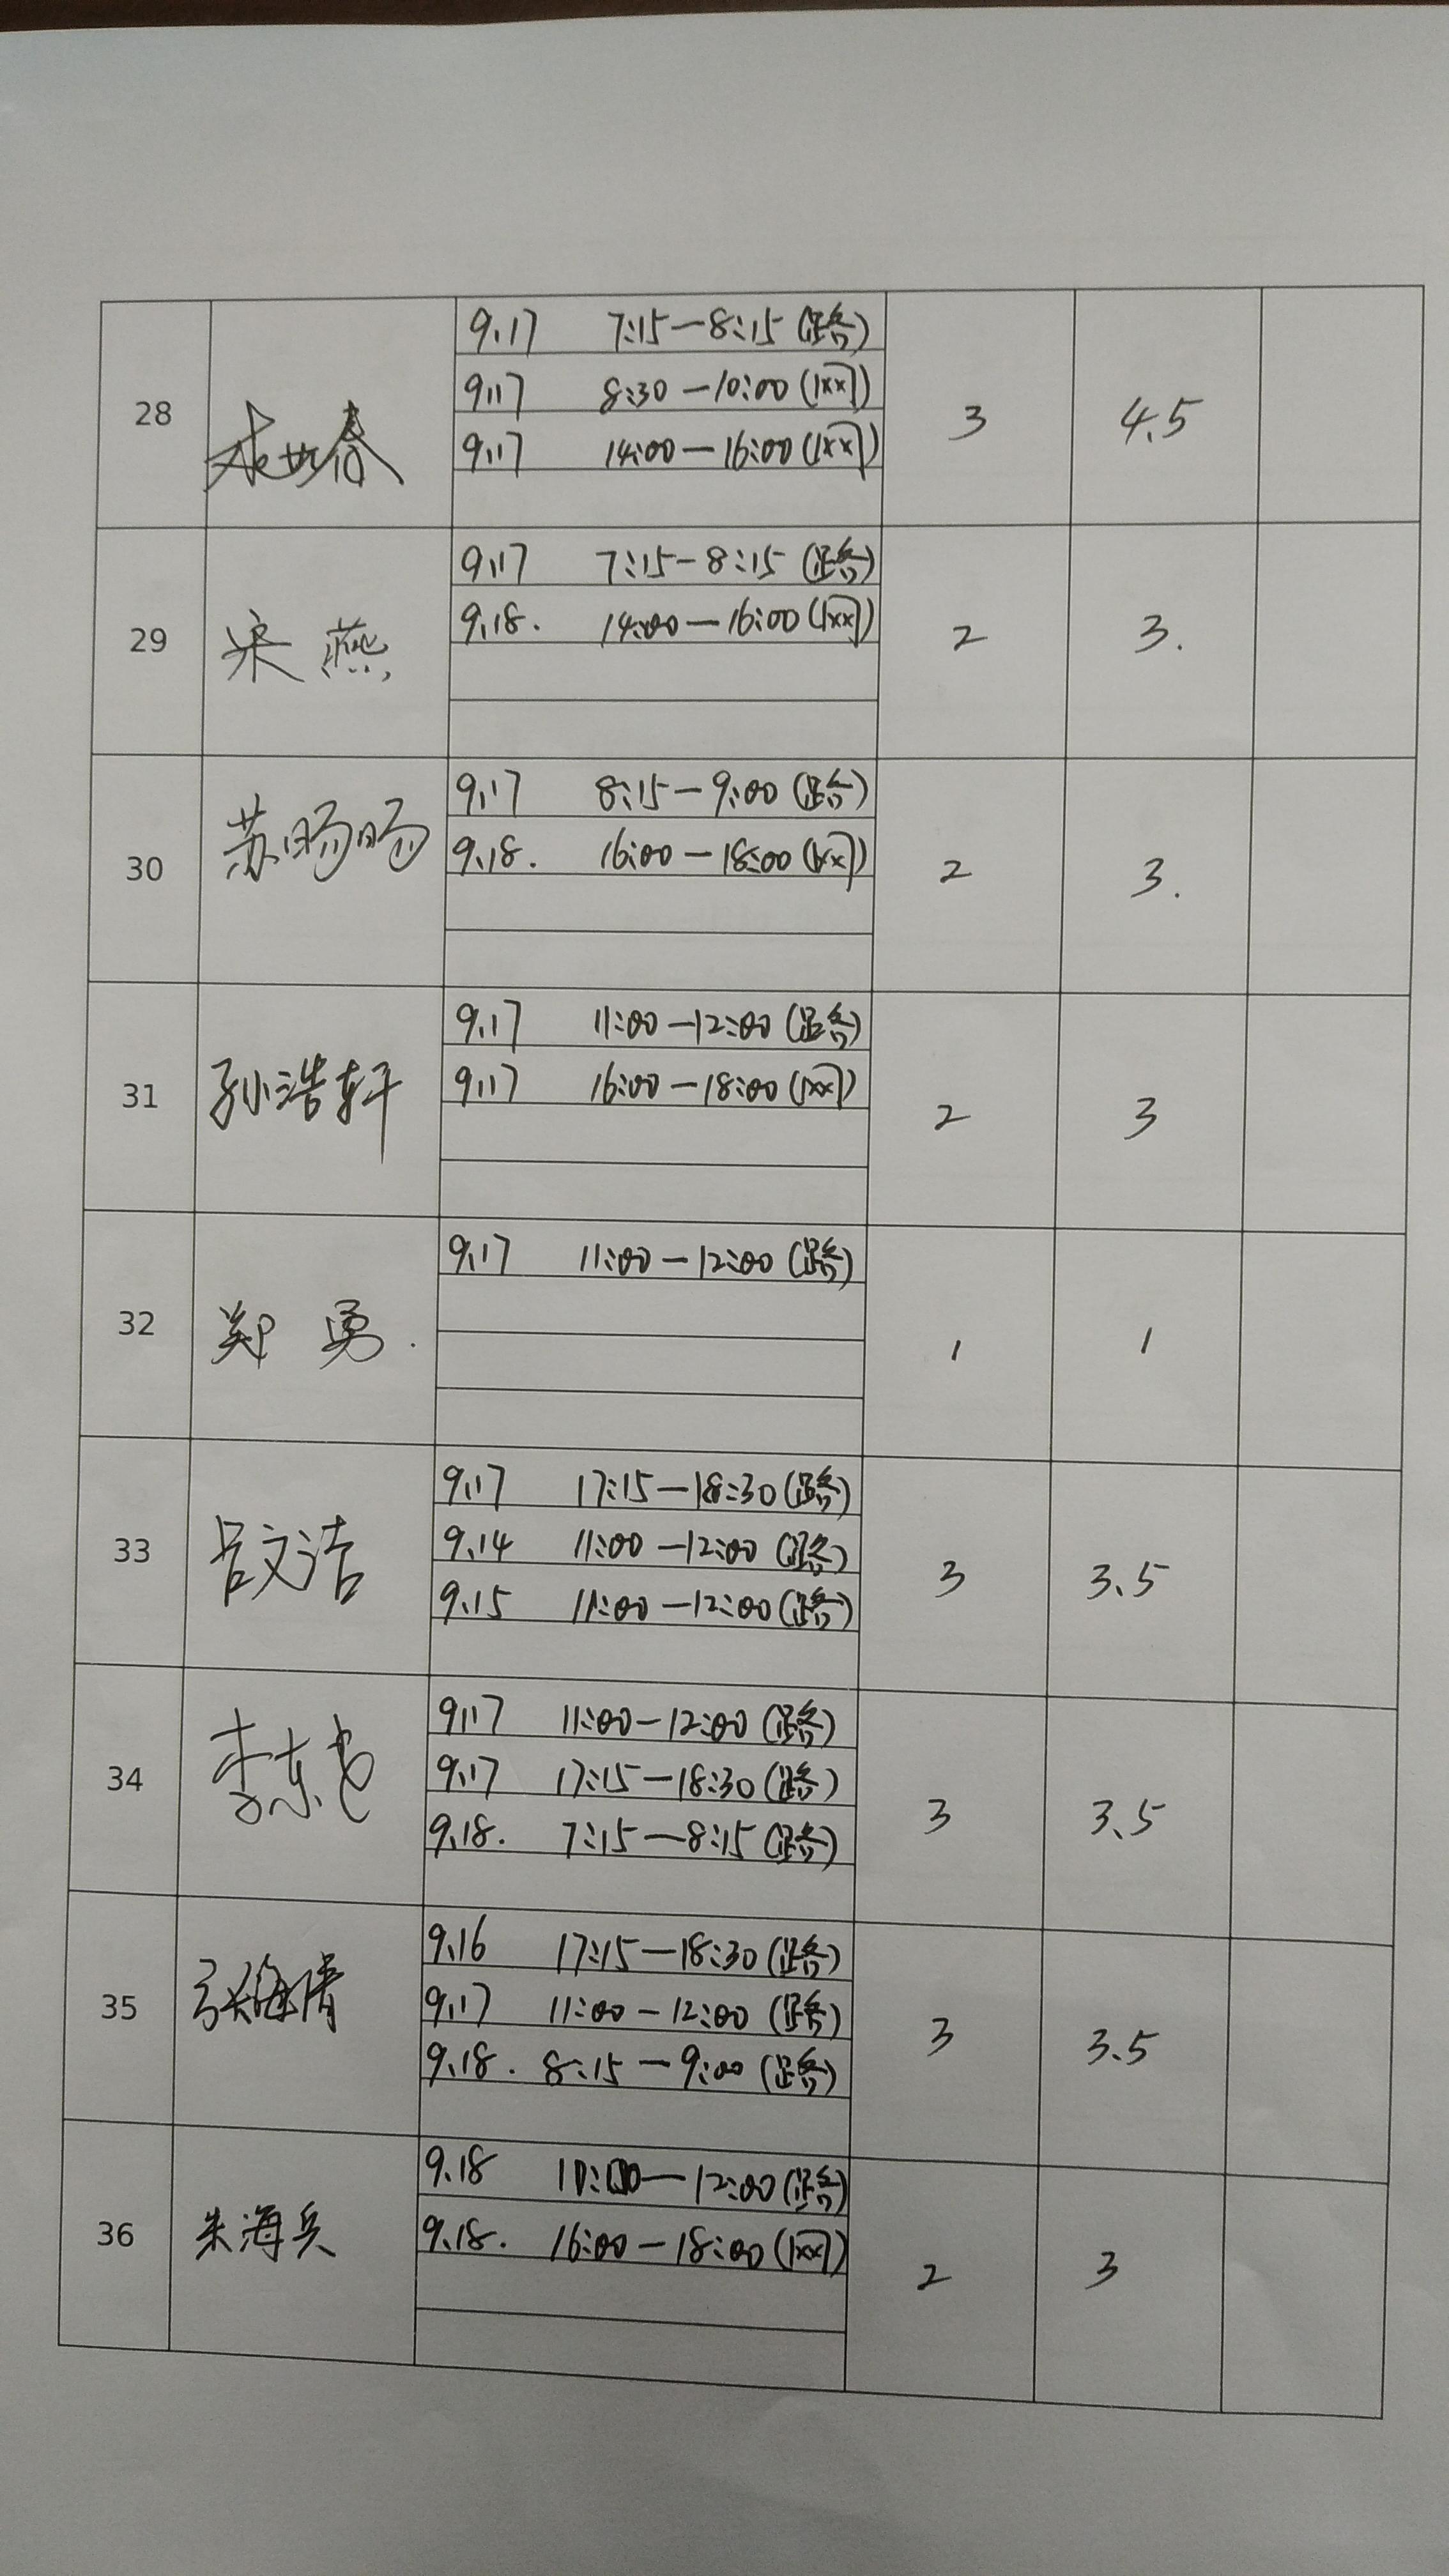 28
9.17 7:15—8:15 (路)
9.17 8:30—10:00 (网)
9.17 14:00—16:00 (网)
3 4.5
29 宋燕
9.17 7:15—8:15 (路)
9.18. 14:00—16:00 (网)
2 3.
30 苏旸旸
9.17 8:15—9:00 (路)
9.18. 16:00—18:00 (网)
2 3.
31 孙浩轩
9.17 11:00—12:00 (路)
9.17 16:00—18:00 (网)
2 3
32 郑勇.
9.17 11:00—12:00 (路)
1 1
33 吕文洁
9.17 17:15—18:30 (路)
9.14 11:00—12:00 (路)
9.15 11:00—12:00 (路)
3 3.5
34 李东
9.17 11:00—12:00 (路)
9.17 17:15—18:30 (路)
9.18. 7:15—8:15 (路)
3 3.5
35 张海清
9.16 17:15—18:30 (路)
9.17 11:00—12:00 (路)
9.18. 8:15—9:00 (路)
3 3.5
36 朱海兵
9.18 11:00—12:00 (路)
9.18. 16:00—18:00 (网)
2 3